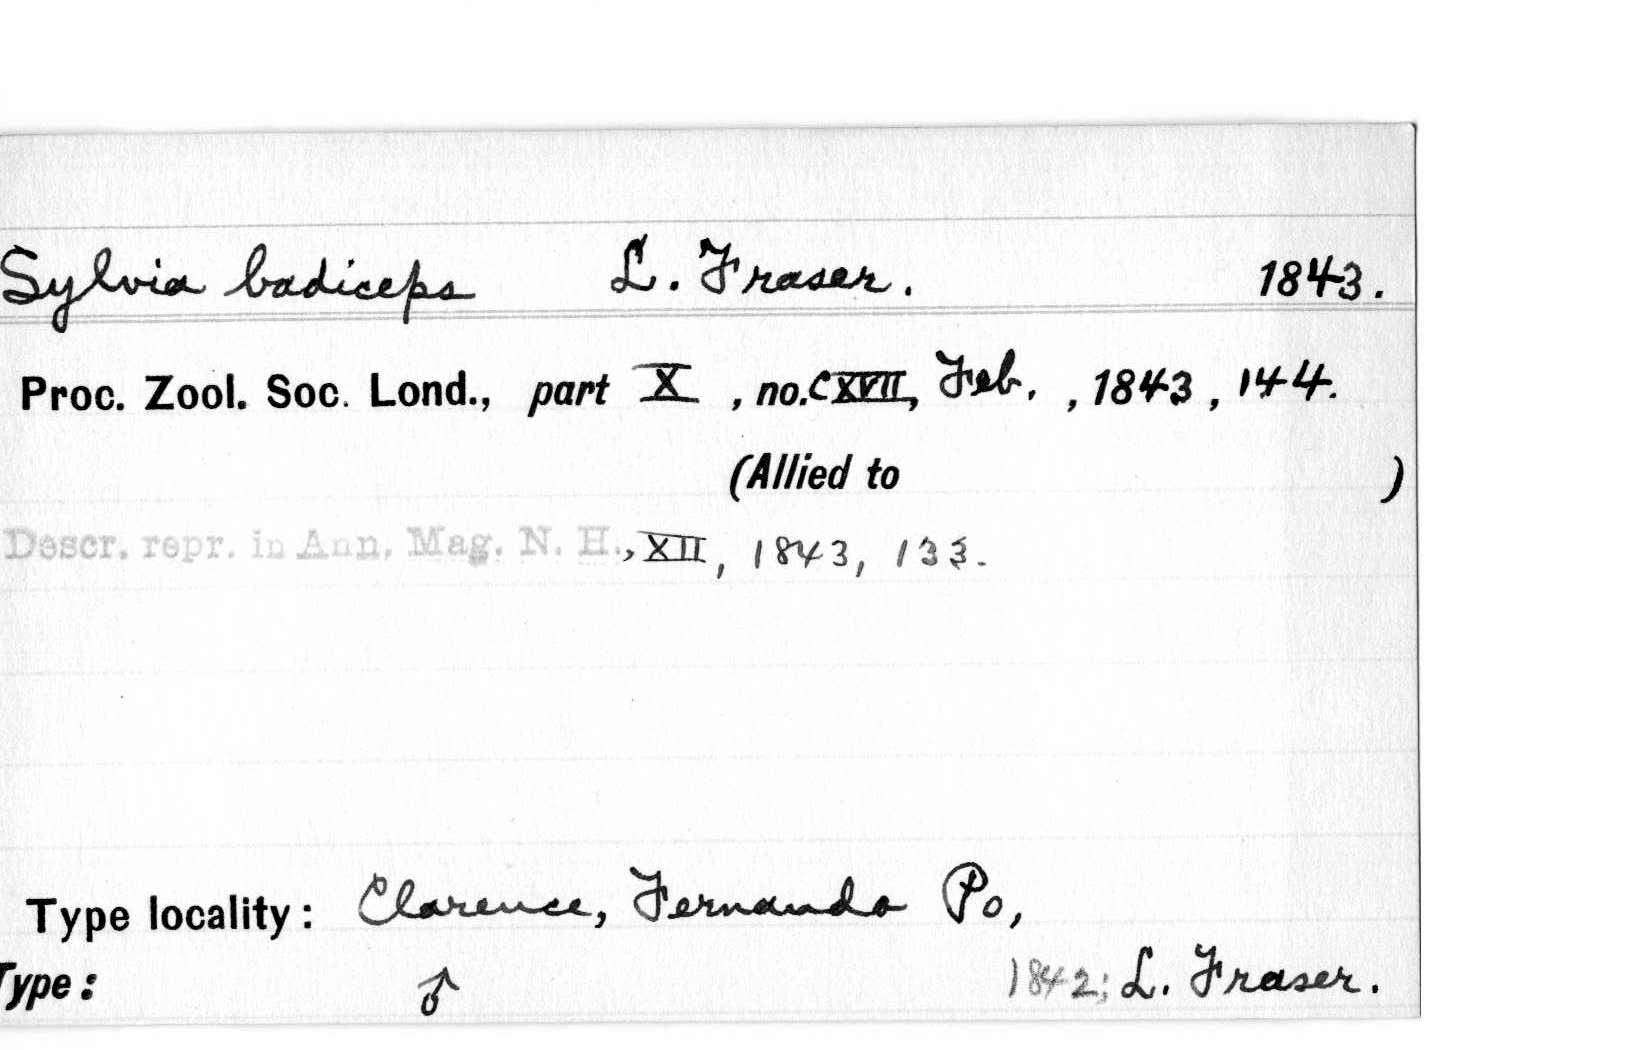 Sylvia badiceps L. Fraser. 1843.
Proc. Zool. Soc. Lond., part X , no. CXVII, Feb. , 1843 , 144.
(Allied to )
Descr. repr. in Ann. Mag. N. H., XII, 1843, 133.
Type locality: Clarence, Fernando Po,
Type: ♂ 1842; L. Fraser.